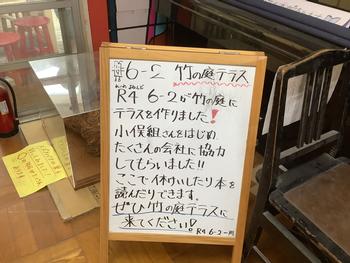 6-2 竹の庭テラス
R4 6-2が竹の庭に
テラスを作りました!
小俣組さんをはじめ、
たくさんの会社に協力
してもらいました!!
ここで休けいしたり本を
読んだりできます。
ぜひ竹の庭テラスに
来てください!
R4 6-2一同